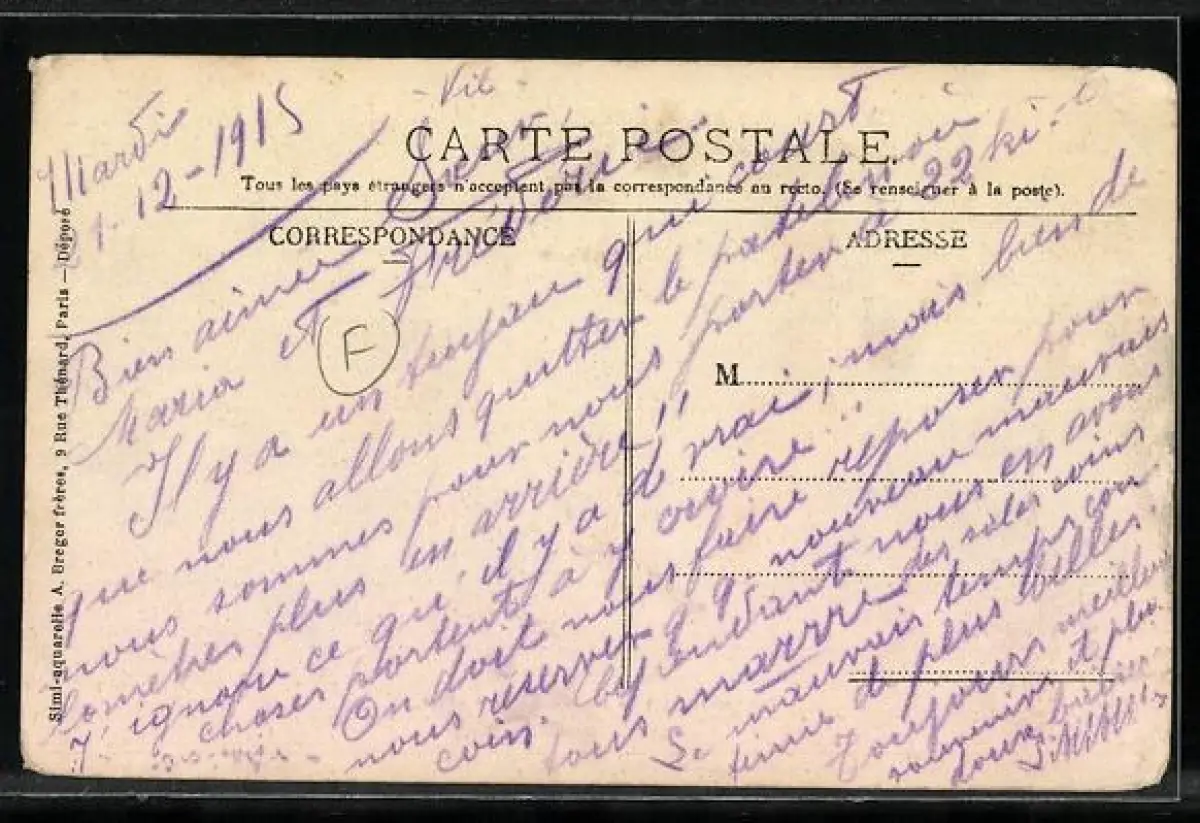 Mardi
12-1915
CARTE POSTALE.
Tous les pays étrangers n'acceptent pas la correspondance au recto. (Se renseigner à la poste).
CORRESPONDANCE
ADRESSE
M
Simi-aquarelle A. Breger frères, 9 Rue Thénard, Paris — Déposé
F
Bien aimée
Maria et Frédéric
Il y a un tuyau qui court
que nous allons quitter le patelin où
nous sommes pour nous porter à 22 ki-
lomètres plus en arrière!!
J'ignore ce qu'il y a d vrai, mais bien de
choses portent à y croire"
On doit nous faire reposer pour
nous réserver qq nouveau mauvais
coin. Cependant nous en avons
tous marre des sales coins
Le mauvais temps con
tinue de plus belle.
Toujours meilleurs
souvenirs et plus
doux baisers